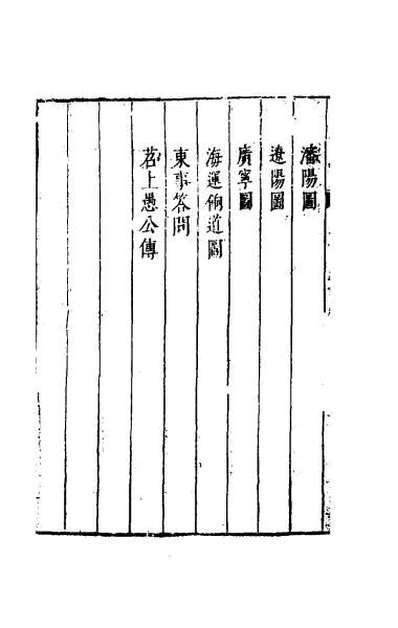 瀋陽圖
遼陽圖
廣寧圖
海運餉道圖
東事答問
苕上愚公傳